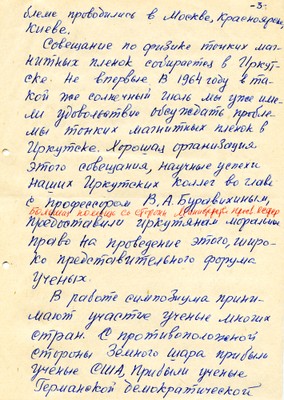 -3-
блеме проводились в Москве, Красноярске,
Киеве.
Совещание по физике тонких маг-
нитных пленок собирается в Иркут-
ске. Не впервые. В 1964 году в та-
кой же солнечный июль мы уже име-
ли удовольствие обсуждать пробле-
мы тонких магнитных пленок в
Иркутске. Хорошая организация
этого совещания, научные успехи
наших Иркутских коллег во главе
с профессором В.А. Буравихиным,
большая помощь со стороны
предоставили иркутянам моральное
право на проведение этого, широ-
ко представительного форума
ученых.
В работе симпозиума прини-
мают участие ученые многих
стран. С противоположной
стороны Земного шара прибыли
ученые США, Прибыли ученые
Германской Демократической